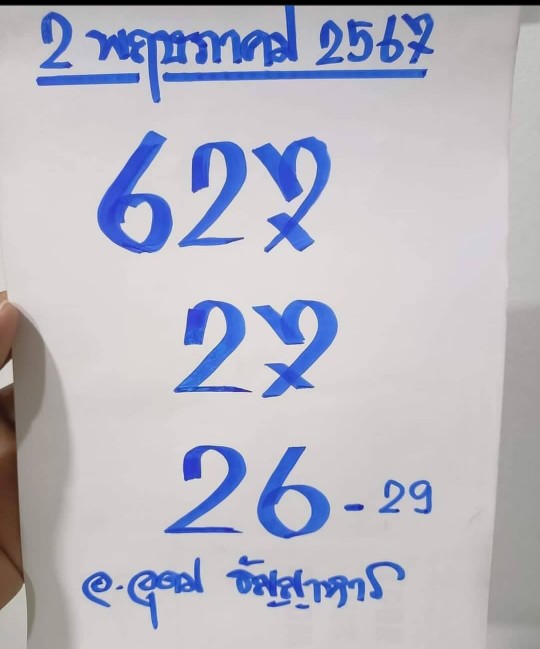 2 พฤษภาคม 2567
627
27
26-29
อ.อุดม ธัญญาหาร